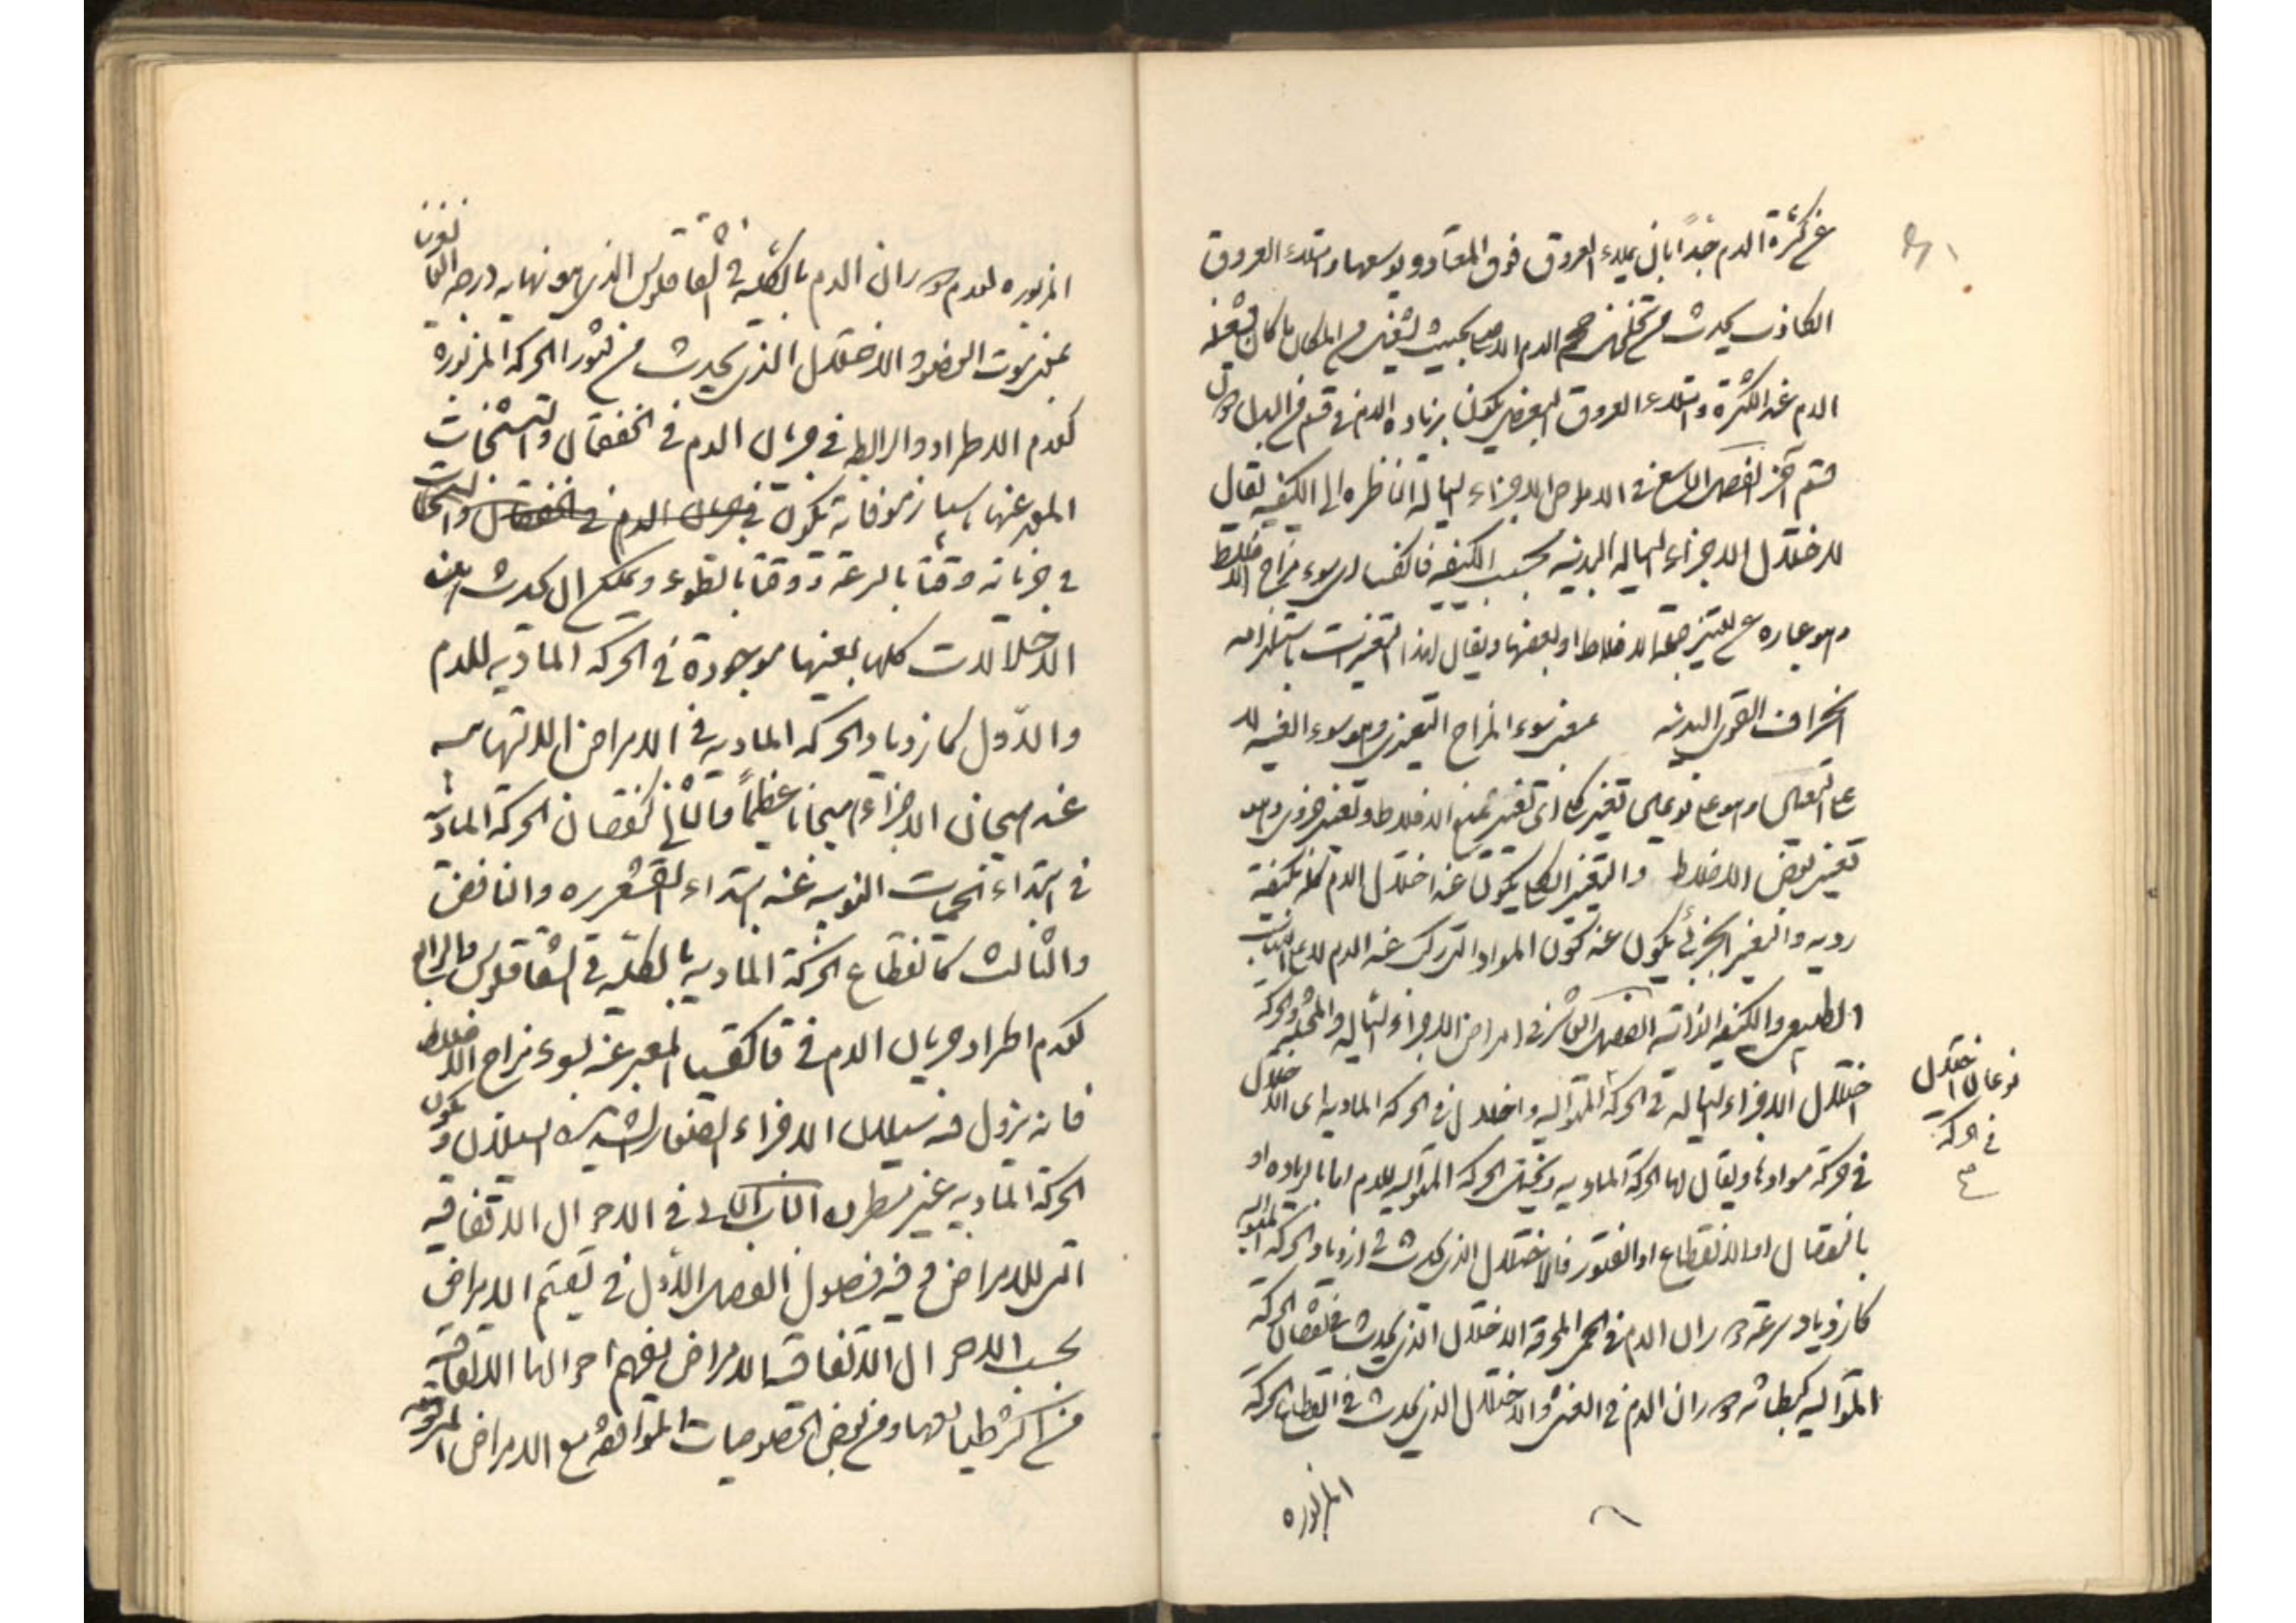 عن كثرة الدم جداً بان يملاء العروق فوق المعتاد ويوسعها وامتلاء العروق
الكاذب يحدث من تخلخل حجم الدم بحيث يقتضى من المكان ما كان يشغله
الدم عند الكثرة وامتلاء العروق البعضى يكون بزيادة الدم فى قسم من البدن دون
قسم آخر الفصل التاسع فى الامراض الاجزاء السيالة الناظرة الى الكيفية يقال
لاختلال الاجزاء السيالة البدنية بحسب الكيفية قاكقميا اى سوء مزاج الاخلاط
وهو عبارة عن تغير جملة الاخلاط او بعضها ويقال لهذا التغيرات
انحراف القوى البدنية بمعنى سوء المزاج التغيرى وهو سوء القنية
على نوعين تغير كلى اى تغير جميع الاخلاط وتغير جزوى وهو
تغير بعض الاخلاط والتغير الكلى يكون عند اختلال الدم كله بكيفية
رديه والتغير الجزئى يكون عند تكون المواد التى تركب عنه الدم
الطبيعى والكيفية الذاتية الفصل العاشر فى امراض الاجزاء السيالة والحركة
اختلال الاجزاء السيالة فى الحركة المتوالية واختلال فى الحركة المادية اى الاختلال
فى حركة موادها ويقال لها الحركة المادية وتختل الحركة المتوالية للدم اما بالزيادة او
بالنقصان او الانقطاع او الفتور فالاختلال الذى يحدث فى ازدياد الحركة المتوالية
كازدياد سرعة دوران الدم فى الحمى المحرقة والاختلال الذى يحدث فى نقصان الحركة
المتوالية كبطائة دوران الدم فى الغشى والاختلال الذى يحدث فى انقطاع الحركة
المزبوره
نوعان اختلال
فى الحركة
صح
المزبوره لعدم دوران الدم بالكلية فى الشقاقلوس الذى هو نهاية درجة
بمعنى موت العضو والاختلال الذى يحدث من فتور الحركة المزبورة
كعدم الاطراد والرابطة فى جريان الدم فى الخفقان والتشنجات
المعبر عنها باسبازموفانه تكون فى جريان الدم فى الخفقان
فى جريانه وقتا بالسرعة ووقتا بالبطوء ويمكن ان يحدث
الاختلالات كلها بعينها موجودة فى الحركة المادية للدم
والاول كازدياد الحركة المادية فى الامراض الالتهابية
عند هيجان الاجزاء هيجانا عظيماً والثانى كنقصان الحركة المادية
فى ابتداء الحميات النوبية عند ابتداء القشعريره والنافض
والثالث كانقطاع الحركة المادية بالكلية فى الشقاقلوس والرابع
كعدم اطراد جريان الدم فى قاكقميا المعبر عنه بسوء مزاج الاخلاط
فانه يزول منه سيلان الاجزاء الصغار الشديدة السيلان وتكون
الحركة المادية غير مطردة الباب الثانى فى الاحوال الاتفاقية
التى للامراض وفيه فصول الفصل الاول فى تقسيم الامراض
بحسب الاحوال الاتفاقية الامراض تفهم احوالها الاتفاقية
من اكثر طبايعها ومن بعض الخصوصيات المتوافقة مع الامراض